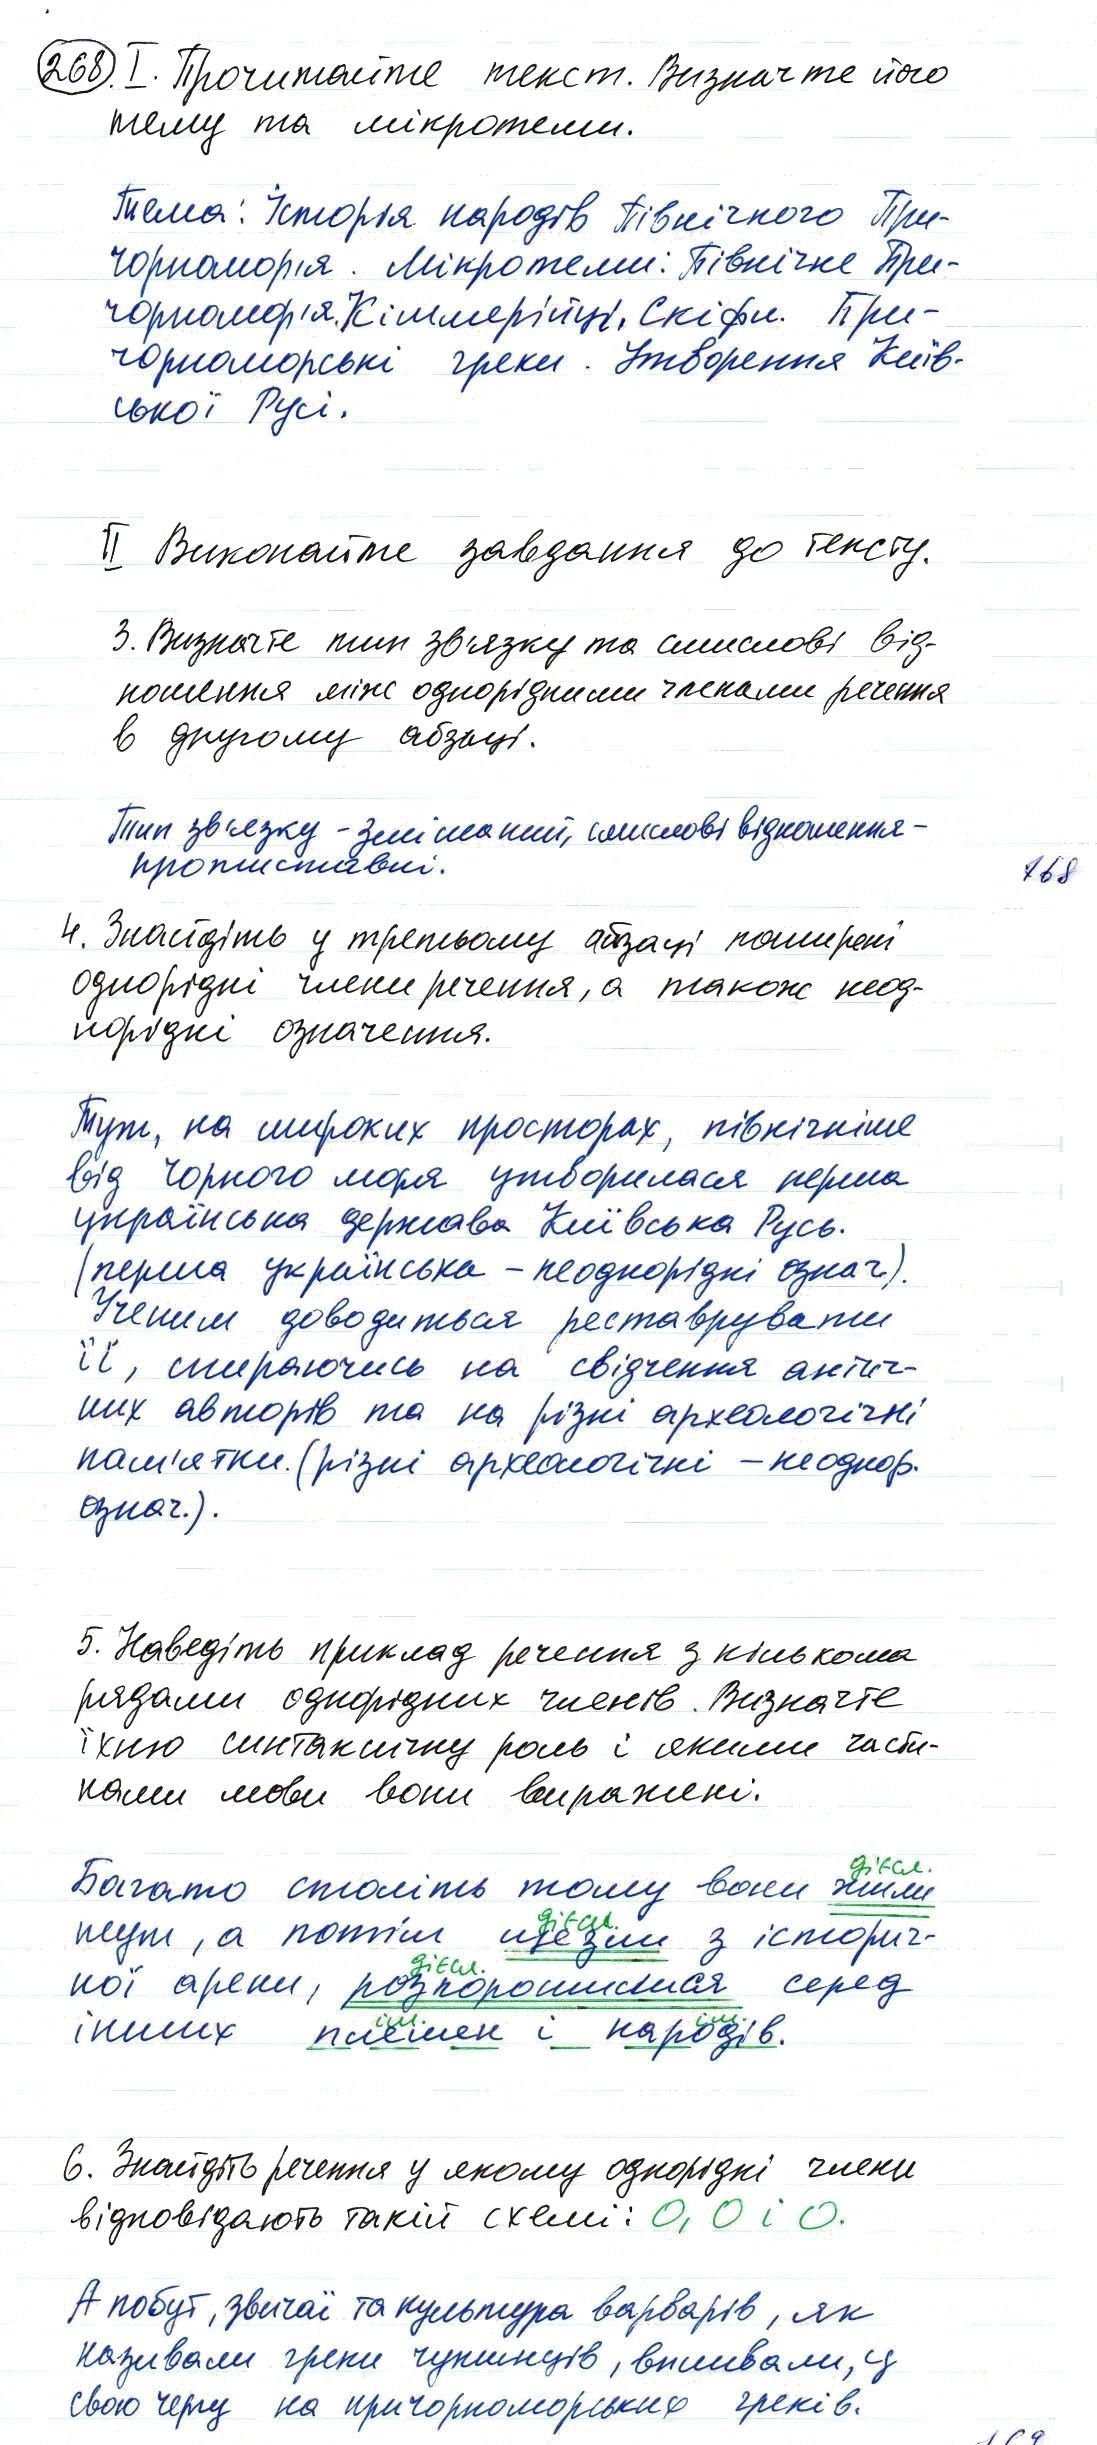 268. I. Прочитайте текст. Визначте його
тему та мікротеми.
Тема: Історія народів Північного При-
чорномор'я. Мікротеми: Північне При-
чорномор'я. Кіммерійці. Скіфи. При-
чорноморські греки. Утворення Київ-
ської Русі.
II Виконайте завдання до тексту.
3. Визначте тип зв'язку та смислові від-
ношення між однорідними членами речення
в другому абзаці.
Тип зв'язку - змішаний, смислові відношення -
протиставні.
168
4. Знайдіть у третьому абзаці поширені
однорідні члени речення, а також неод-
норідні означення.
Тут, на широких просторах, північніше
від Чорного моря утворилася перша
українська держава Київська Русь.
(перша українська - неоднорідні означ).
Ученим доводиться реставрувати
її, спираючись на свідчення антич-
них авторів та на різні археологічні
пам'ятки. (різні археологічні - неоднор.
означ.).
5. Наведіть приклад речення з кількома
рядами однорідних членів. Визначте
їхню синтаксичну роль і якими части-
нами мови вони виражені.
дієсл.
Багато століть тому вони жили
дієсл.
тут, а потім щезли з історич-
дієсл.
ної арени, розпорошилися серед
ім. ім.
інших племен і народів.
6. Знайдіть речення у якому однорідні члени
відповідають такій схемі: О, О і О.
А побут, звичаї та культура варварів, як
називали греки чужинців, впливали, у
свою чергу на причорноморських греків.